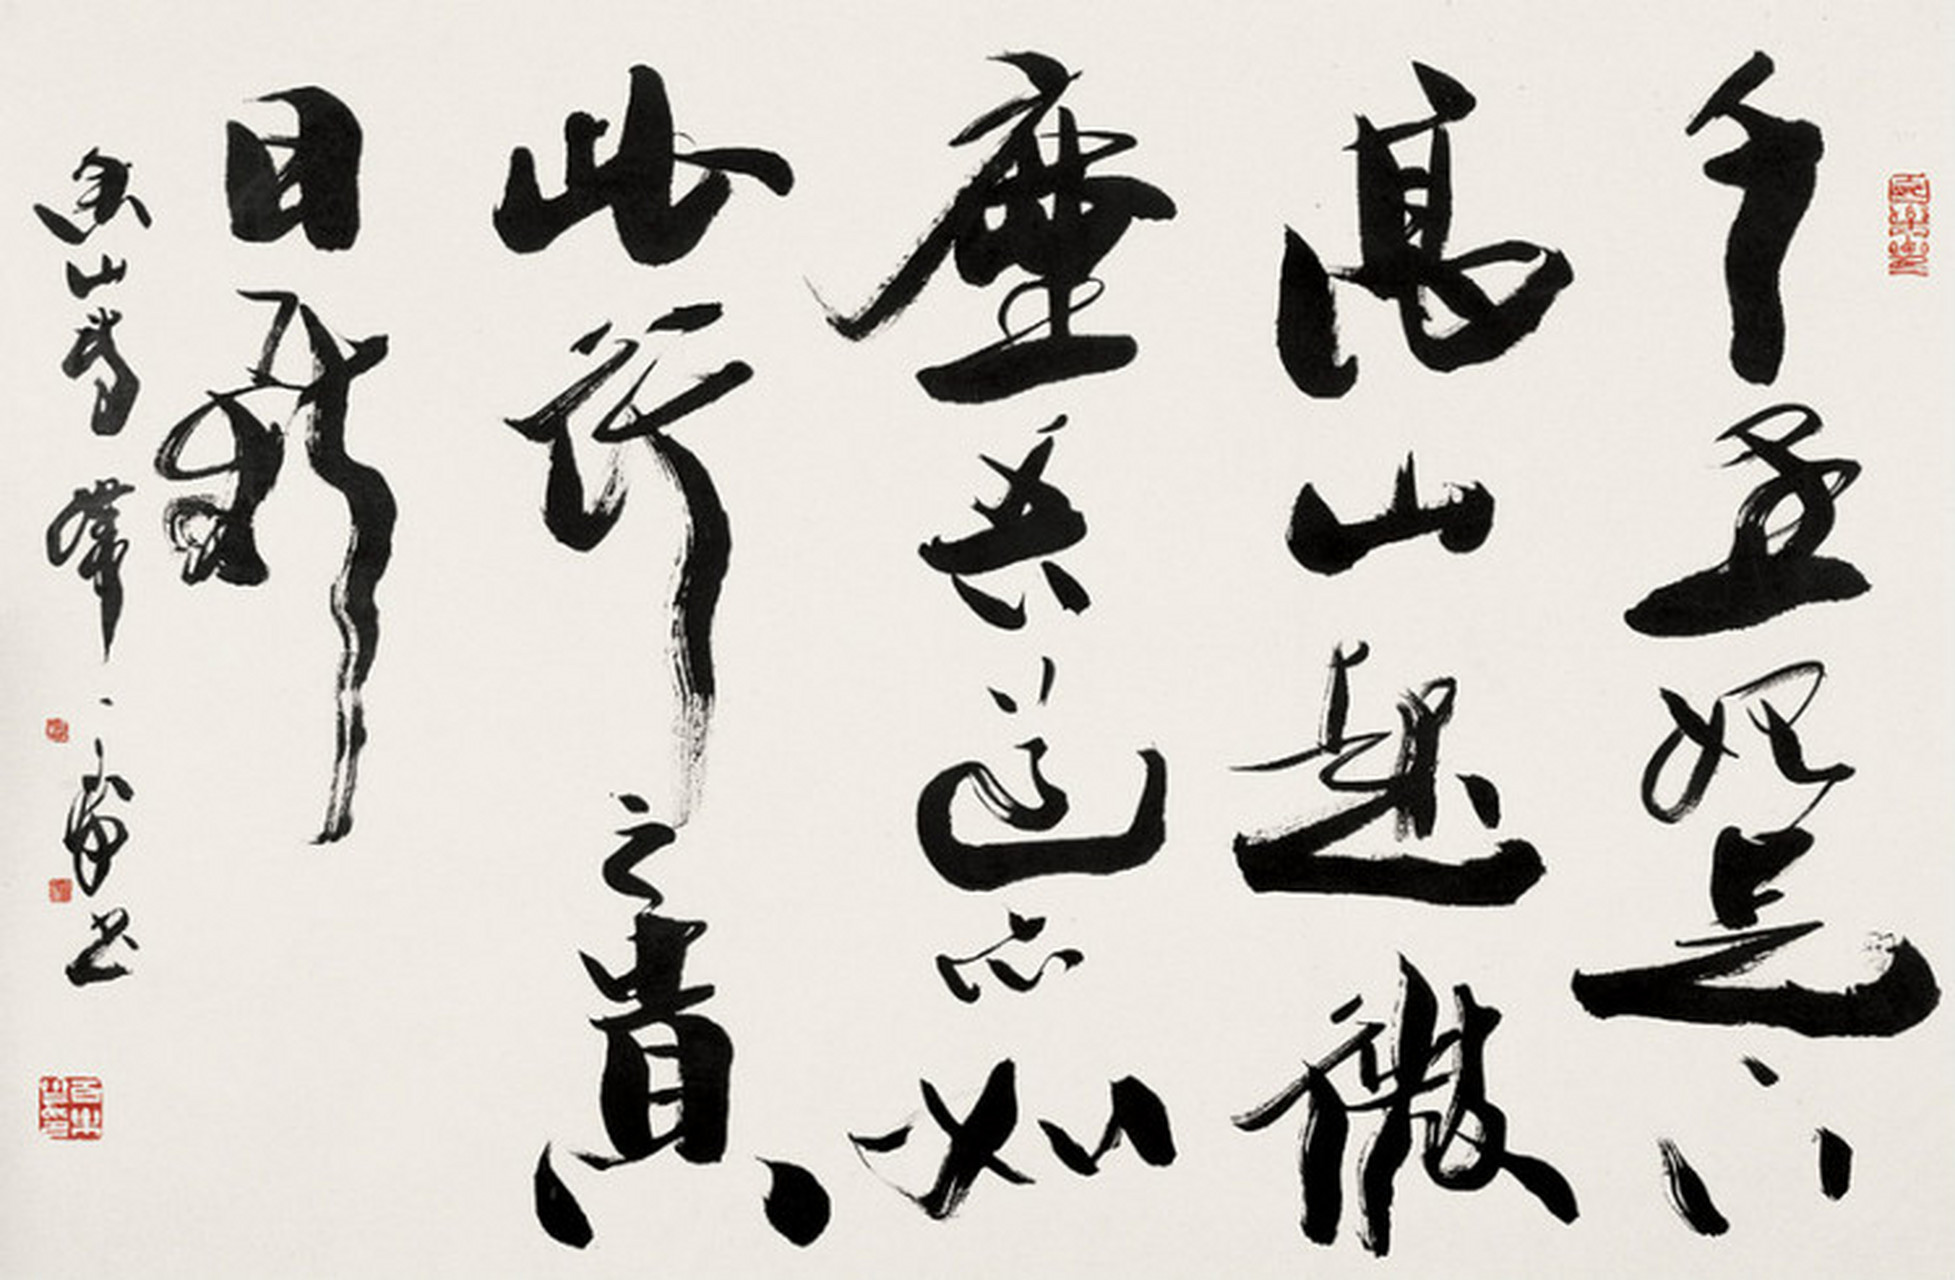 千里始足下
高山起微
塵吾道亦如
此行之貴
日新
香山
书